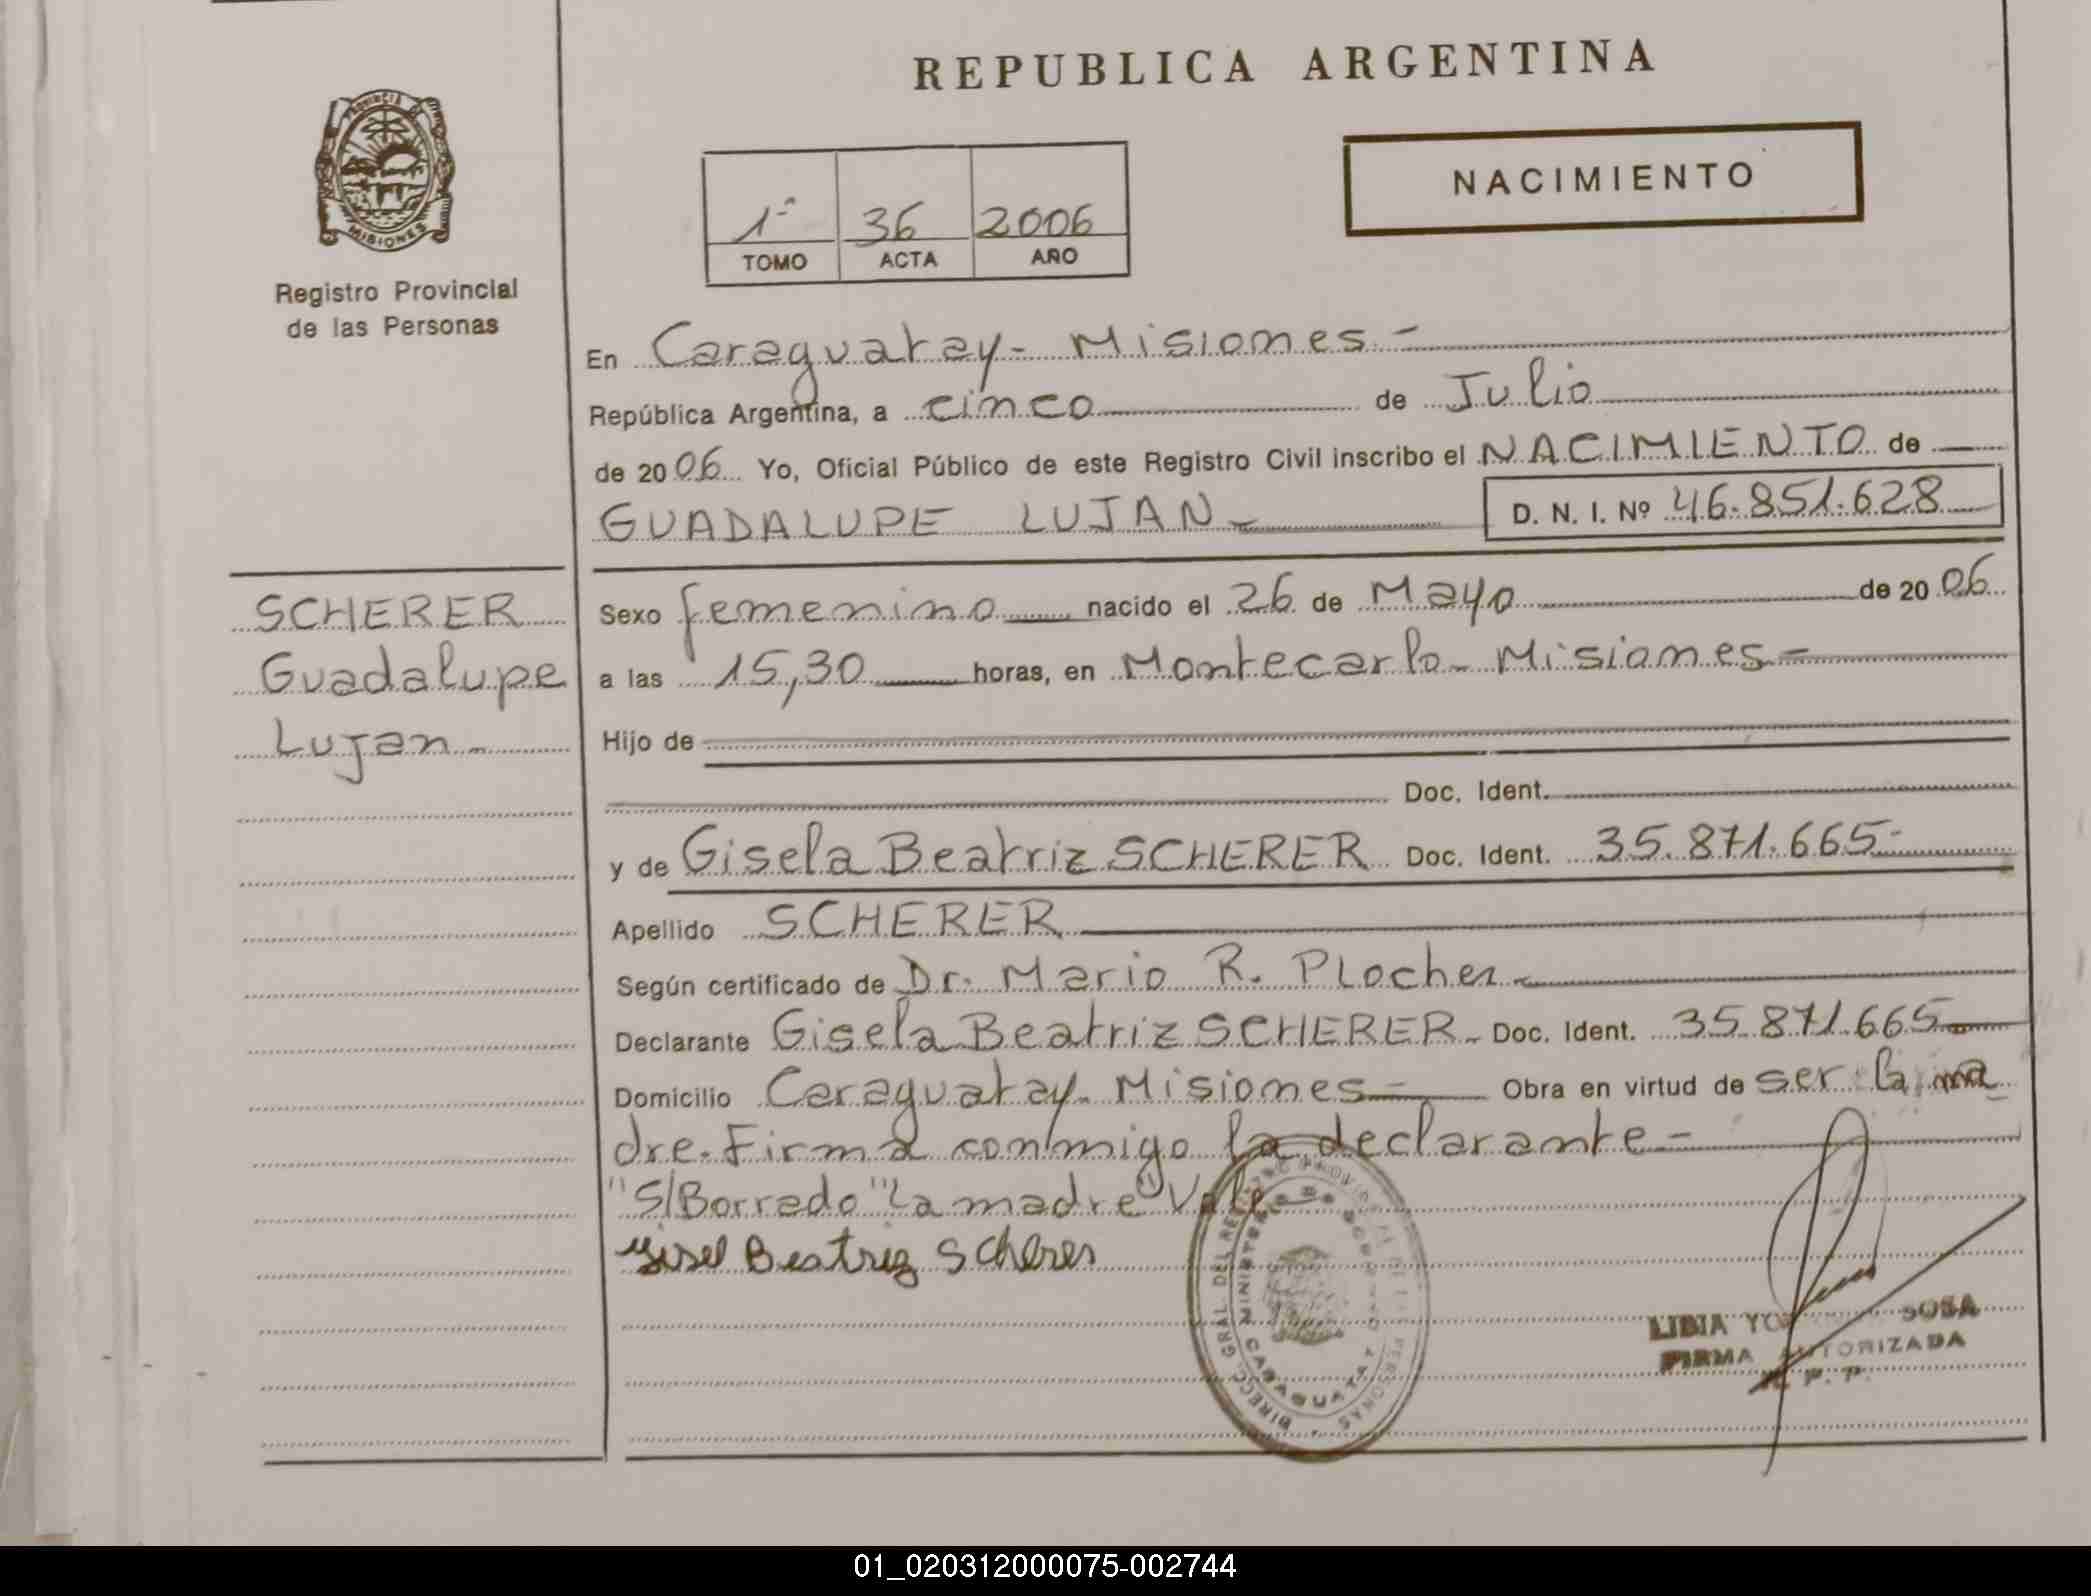 REPUBLICA ARGENTINA
PROVINCIA DE
MISIONES
Registro Provincial
de las Personas
NACIMIENTO
1º 36 2006
TOMO ACTA AÑO
En Caraguatay - Misiones -
República Argentina, a cinco de Julio
de 2006 Yo, Oficial Público de este Registro Civil inscribo el NACIMIENTO de
GUADALUPE LUJAN - D. N. I. Nº 46.851.628
SCHERER
Guadalupe
Lujan -
Sexo femenino nacido el 26 de Mayo de 2006
a las 15,30 horas, en Montecarlo - Misiones -
Hijo de
Doc. Ident.
y de Gisela Beatriz SCHERER Doc. Ident. 35.871.665 -
Apellido SCHERER
Según certificado de Dr. Mario R. Plocher -
Declarante Gisela Beatriz SCHERER - Doc. Ident. 35.871.665
Domicilio Caraguatay - Misiones - Obra en virtud de ser la ma
dre. Firma conmigo la declarante -
"S/Borrado" "La madre" Vale
Beatriz Scherer
DIRECC. GRAL. DEL REG. PROVIN. DE PERSONAS
MINISTERIO DE
CARAGUATAY
LIBIA SOSA
FIRMA AUTORIZADA
R. P. P.
01_020312000075-002744